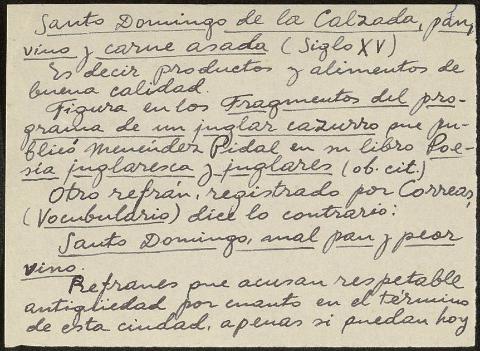 Santo Domingo de la Calzada, pan,
vino y carne asada (Siglo XV)
Es decir productos y alimentos de
buena calidad.
Figura en los Fragmentos del pro-
grama de un juglar cazurro que pu-
blicó Menéndez Pidal en su libro Poe-
sía juglaresca y juglares (ob. cit.)
Otro refrán, registrado por Correas,
(Vocubulario) dice lo contrario:
Santo Domingo, mal pan y peor
vino.
Refranes que acusan respetable
antigüedad por cuanto en el término
de esta ciudad, apenas si puedan hoy